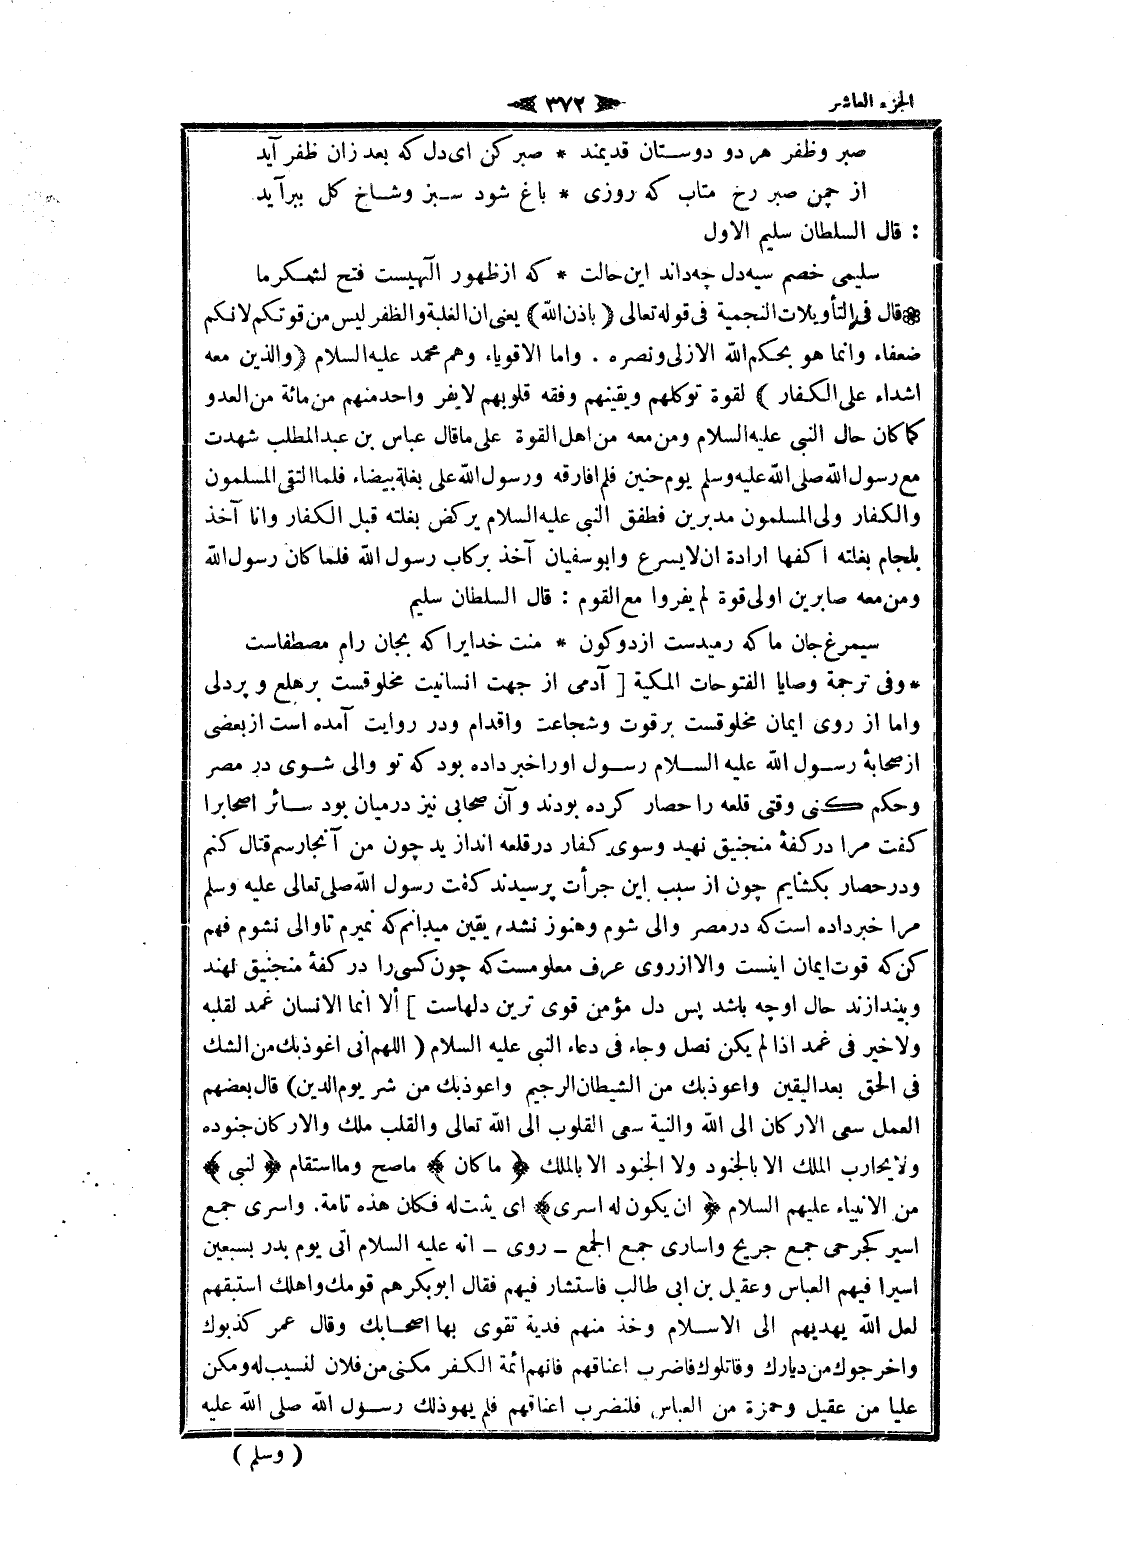 الجزء العاشر
٣٧٢
صبر وظفر هر دو دوستان قديمند * صبر كن اى دل كه بعد زان ظفر آيد
از چمن صبر رخ متاب كه روزى * باغ شود سبز وشاخ كل ببر آيد
: قال السلطان سليم الاول
سليمى خصم سيه دل چه داند اين حالت * كه از ظهور الهيست فتح لشكر ما
* قال فى التأويلات النجمية فى قوله تعالى ( باذن الله ) يعنى ان الغلبة والظفر ليس من قوتكم لانكم
ضعفاء وانما هو بحكم الله الازلى ونصره . واما الاقوياء وهم محمد عليه السلام ( والذين معه
اشداء على الكفار ) لقوة توكلهم ويقينهم وفقه قلوبهم لايفر واحد منهم من مائة من العدو
كما كان حال النبى عليه السلام ومن معه من اهل القوة على ما قال عباس بن عبد المطلب شهدت
مع رسول الله صلى الله عليه وسلم يوم حنين فلم افارقه ورسول الله على بغلة بيضاء فلما التقى المسلمون
والكفار ولى المسلمون مدبرين فطفق النبى عليه السلام يركض بغلته قبل الكفار وانا آخذ
بلجام بغلته اكفها ارادة ان لايسرع وابو سفيان آخذ بركاب رسول الله فلما كان رسول الله
ومن معه صابرين اولى قوة لم يفروا مع القوم : قال السلطان سليم
سيمرغ جان ما كه رميدست از دو كون * منت خدايرا كه بجان رام مصطفاست
* وفى ترجمة وصايا الفتوحات المكية [ آدمى از جهت انسانيت مخلوقست بر هلع و بردلى
واما از روى ايمان مخلوقست بر قوت وشجاعت واقدام ودر روايت آمده است از بعضى
از صحابۀ رسول الله عليه السلام رسول اورا خبر داده بود كه تو والى شوى در مصر
وحكم كنى وقتى قلعه را حصار كرده بودند و آن صحابى نيز درميان بود سائر اصحابرا
كفت مرا در كفۀ منجنيق نهيد وسوى كفار در قلعه اندازيد چون من آنجا رسم قتال كنم
ودر حصار بكشايم چون از سبب اين جرأت پرسيدند كفت رسول الله صلى تعالى عليه وسلم
مرا خبر داده است كه در مصر والى شوم وهنوز نشدم يقين ميدانم كه نميرم تا والى نشوم فهم
كن كه قوت ايمان اينست والا از روى عرف معلومست كه چون كسى را در كفۀ منجنيق نهند
وبيندازند حال او چه باشد پس دل مؤمن قوى ترين دلهاست ] ألا انما الانسان غمد لقلبه
ولا خير فى غمد اذا لم يكن نصل وجاء فى دعاء النبى عليه السلام ( اللهم انى اعوذ بك من الشك
فى الحق بعد اليقين واعوذ بك من الشيطان الرجيم واعوذ بك من شر يوم الدين ) قال بعضهم
العمل سعى الاركان الى الله والنية سعى القلوب الى الله تعالى والقلب ملك والاركان جنوده
ولا يحارب الملك الا بالجنود ولا الجنود الا بالملك ﴿ ما كان ﴾ ما صح وما استقام ﴿ لنبى ﴾
من الانبياء عليهم السلام ﴿ ان يكون له اسرى ﴾ اى يثبت له فكان هذه تامة . واسرى جمع
اسير كجرحى جمع جريح واسارى جمع الجمع ـ روى ـ انه عليه السلام اتى يوم بدر بسبعين
اسيرا فيهم العباس وعقيل بن ابى طالب فاستشار فيهم فقال ابوبكر هم قومك واهلك استبقهم
لعل الله يهديهم الى الاسلام وخذ منهم فدية تقوى بها اصحابك وقال عمر كذبوك
واخرجوك من ديارك وقاتلوك فاضرب اعناقهم فانهم ائمة الكفر مكنى من فلان لنسيب له ومكن
عليا من عقيل وحمزة من العباس فلنضرب اعناقهم فلم يهو ذلك رسول الله صلى الله عليه
( وسلم )